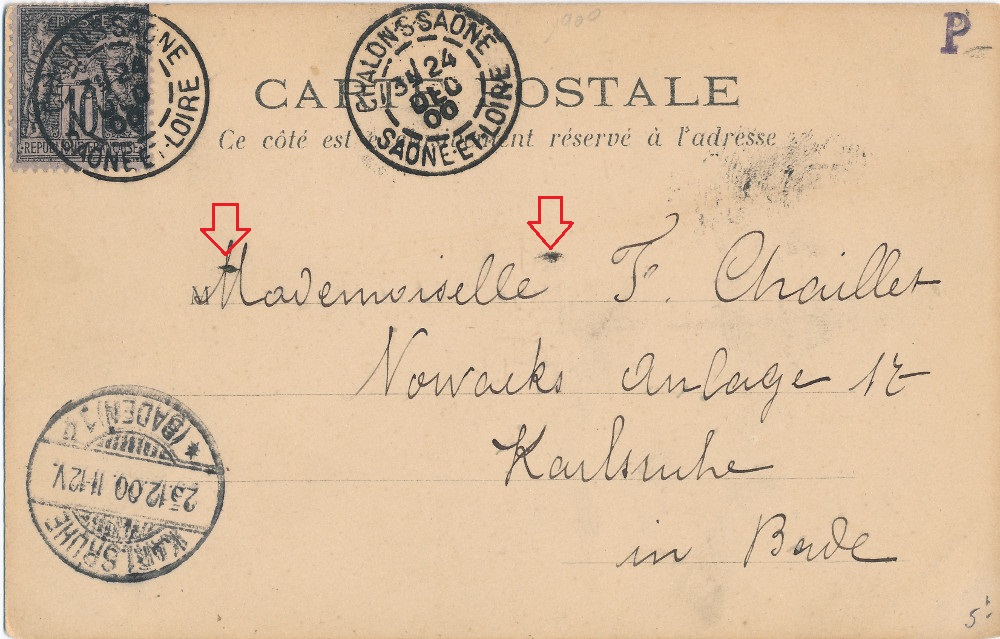 900
P
POSTES
10
REPUBLIQUE FRANÇAISE
SAÔNE-ET-LOIRE
CHALON-S-SAÔNE
3E 24
DEC
00
SAÔNE-ET-LOIRE
CARTE POSTALE
Ce côté est exclusivement réservé à l'adresse
M Mademoiselle F. Chaillet
Nowacks Anlage 17
Karlsruhe
in Bade
KARLSRUHE
25.12.00. 11-12V.
* (BADEN) 1
5